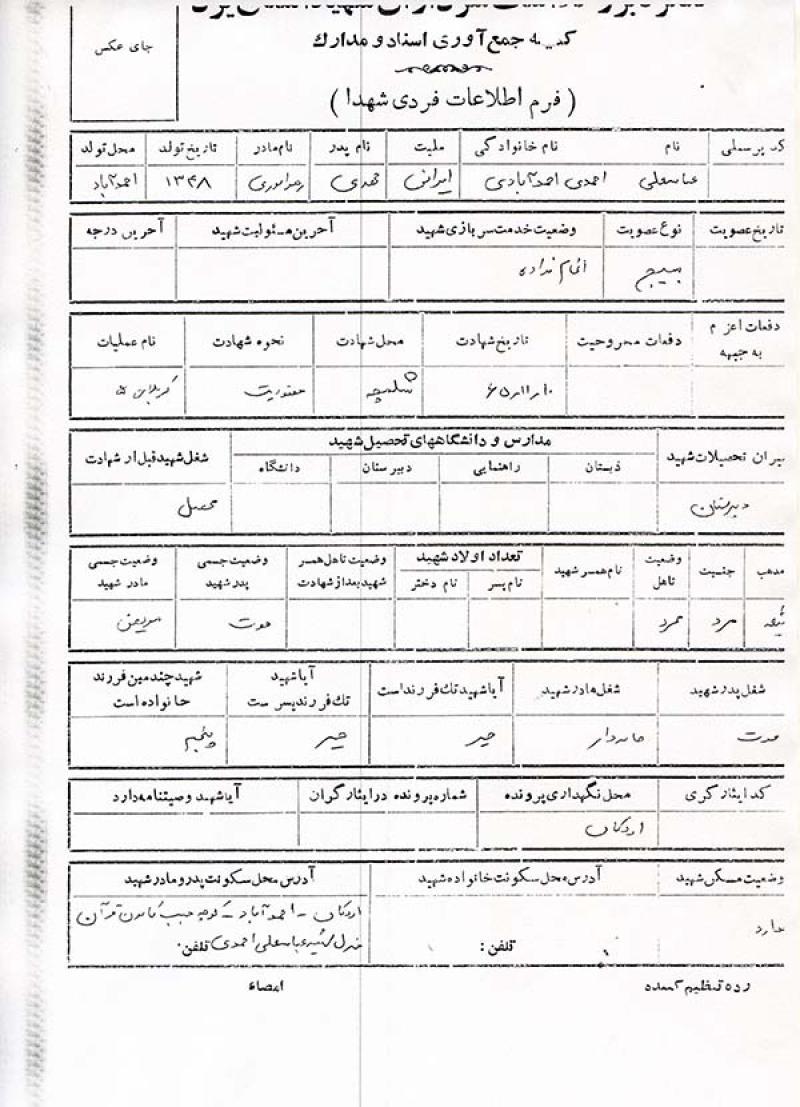 کمیته جمع‌آوری اسناد و مدارك
جای عکس
( فرم اطلاعات فردی شهدا )
کد پرسنلی نام نام خانوادگی ملیت نام پدر نام مادر تاریخ تولد محل تولد
عباسعلی احمدی احمدآبادی ایرانی ۱۳۴۸ احمدآباد
تاریخ عضویت نوع عضویت وضعیت خدمت سربازی شهید آخرین مسئولیت شهید آخرین درجه
بسیج انجام نداده
دفعات اعزام به جبهه دفعات مجروحیت تاریخ شهادت محل شهادت نحوه شهادت نام عملیات
۶۵/۱۱/۱۰ شلمچه مفقودیت کربلای ۵
میزان تحصیلات شهید مدارس و دانشگاههای تحصیل شهید شغل شهید قبل از شهادت
دبستان راهنمایی دبیرستان دانشگاه
دبیرستان محصل
مذهب جنسیت وضعیت تاهل نام همسر شهید تعداد اولاد شهید وضعیت تاهل همسر شهید بعد از شهادت وضعیت جسمی پدر شهید وضعیت جسمی مادر شهید
نام پسر نام دختر
شیعه مرد مجرد فوت مریض
شغل پدر شهید شغل مادر شهید آیا شهید تك فرزند است آیا شهید تك فرزند پسر است شهید چندمین فرزند خانواده است
فوت خانه‌دار خیر خیر پنجم
کد ایثارگری محل نگهداری پرونده شماره پرونده در ایثارگران آیا شهید وصیتنامه دارد
اردکان
وضعیت مسکن شهید آدرس محل سکونت خانواده شهید آدرس محل سکونت پدر و مادر شهید
ندارد اردکان - احمدآباد - کوچه جنب کانون قرآن
تلفن: منزل شهید عباسعلی احمدی تلفن:
رده تنظیم کننده امضاء